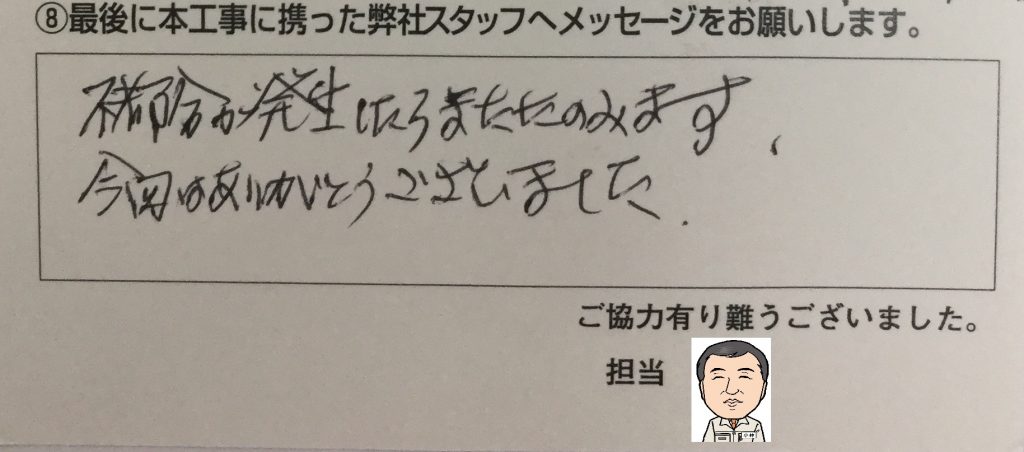 ⑧最後に本工事に携った弊社スタッフへメッセージをお願いします。
不都合が発生したらまたたのみます、
今回はありがとうございました.
ご協力有り難うございました。
担当